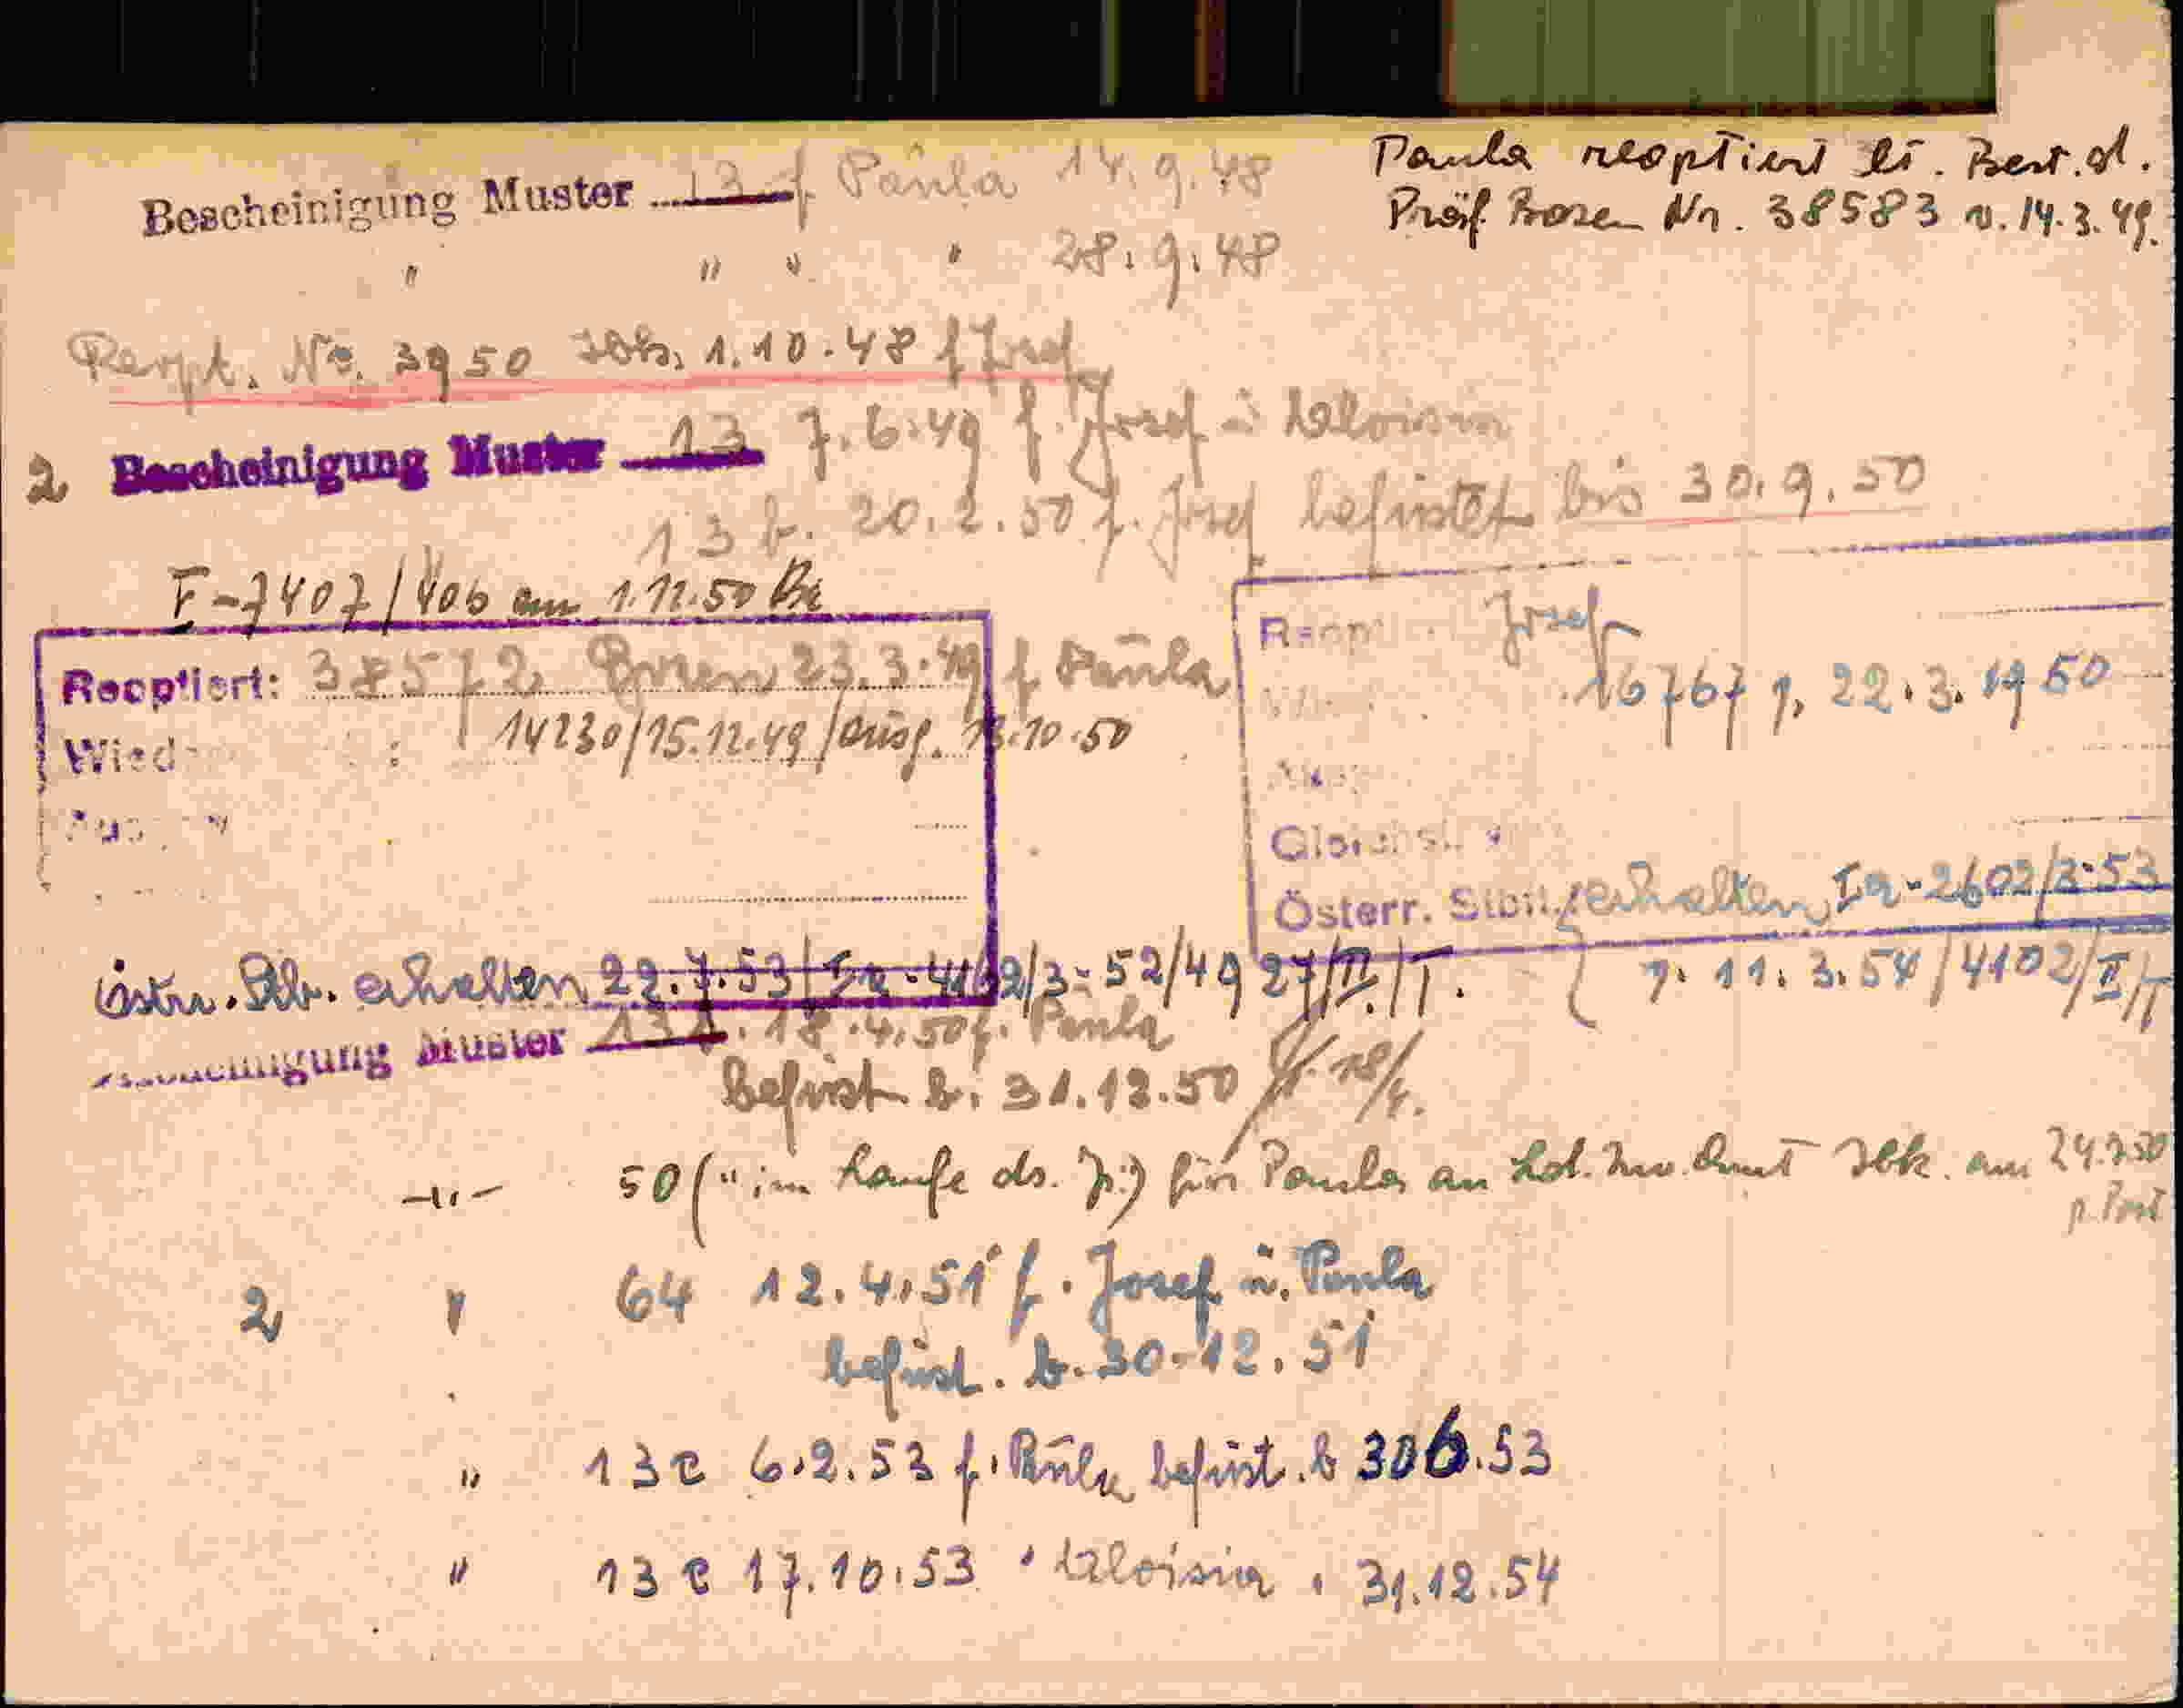 Bescheinigung Muster 13 f Paula 14.9.48
" " " " 28.9.48
Paula reoptiert lt. Best. d.
Präf. Bozen Nr. 38583 v. 14.3.49.
Rept. No. 3950 Ibk. 1.10.48 f Josef
2 Bescheinigung Muster 13 7.6.49 f. Josef u Aloisia
13 b. 20.2.50 f. Josef befristet bis 30.9.50
I-7407/406 am 1.11.50
Reoptiert: Bozen 23.3.49 f Paula
14230/15.12.49/ausg. 13.10.50
Josef
16767 22.3.1950
Österr. Stbü. erhalten Ia-2602/3-53
11.3.54/4102/II/T
östr. Stb. erhalten 22.7.53/Ia-4162/3-52/4927/II/T.
Bescheinigung Muster 18.4.50 f. Paula
befrist. b. 31.12.50
-"- 50 (" im Laufe ds. J.") für Paula an Ibk. am
p. Post
2 " 64 12.4.51 f. Josef u. Paula
befrist. b. 30.12.51
" 13 c 6.2.53 f. Paula befrist. b 30 6.53
" 13 c 17.10.53 " Aloisia " 31.12.54